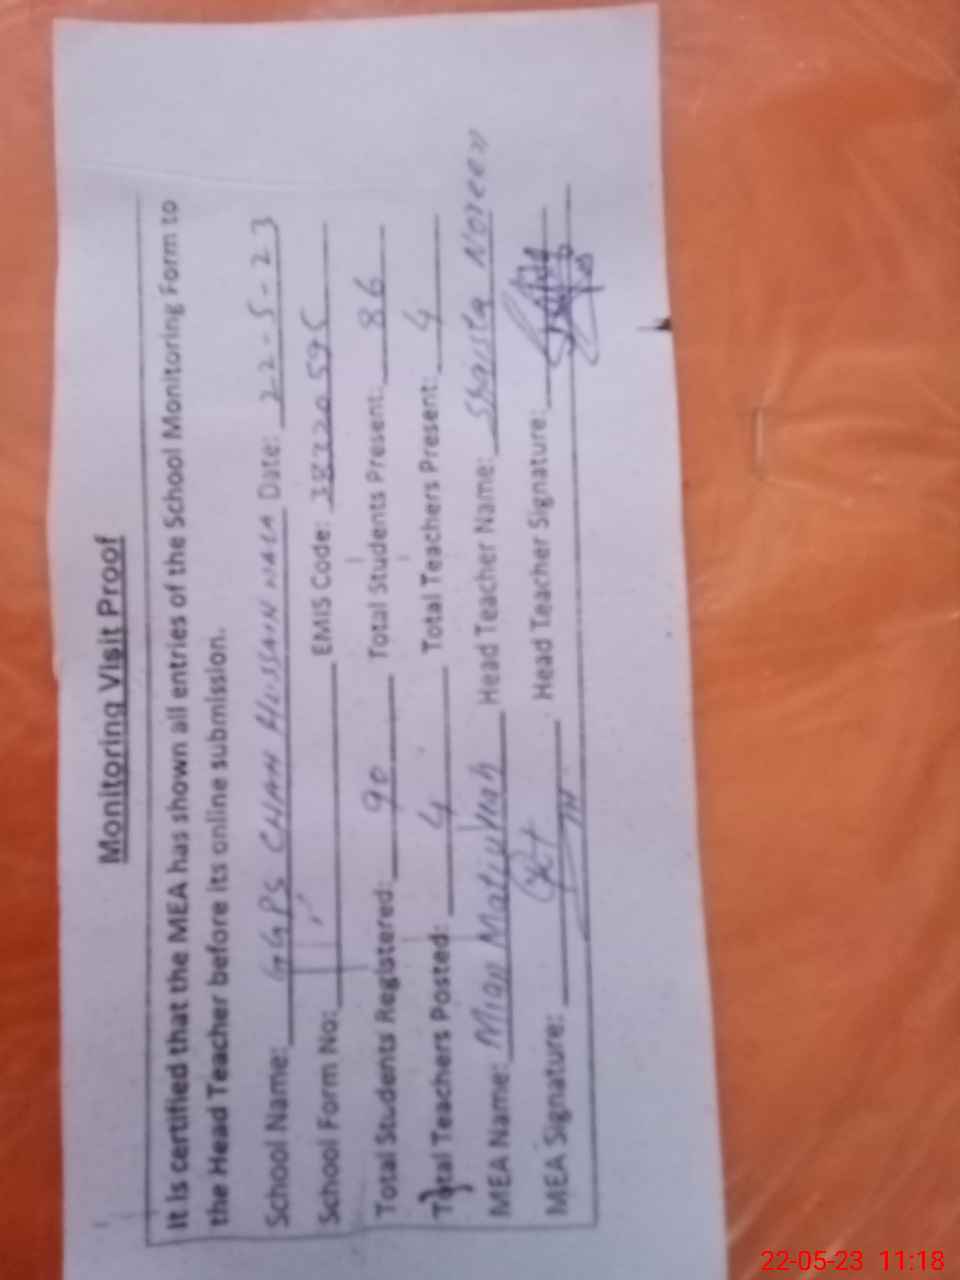 Monitoring Visit Proof
It is certified that the MEA has shown all entries of the School Monitoring Form to
the Head Teacher before its online submission.
School Name: GGPS CHAH HUSSAIN WALA Date: 22-5-23
School Form No: EMIS Code: 38220595
Total Students Registered: 90 Total Students Present: 86
Total Teachers Posted: 4 Total Teachers Present: 4
MEA Name: Mian Matiullah Head Teacher Name: Shaista Noreen
MEA Signature: Head Teacher Signature:
22-05-23 11:18